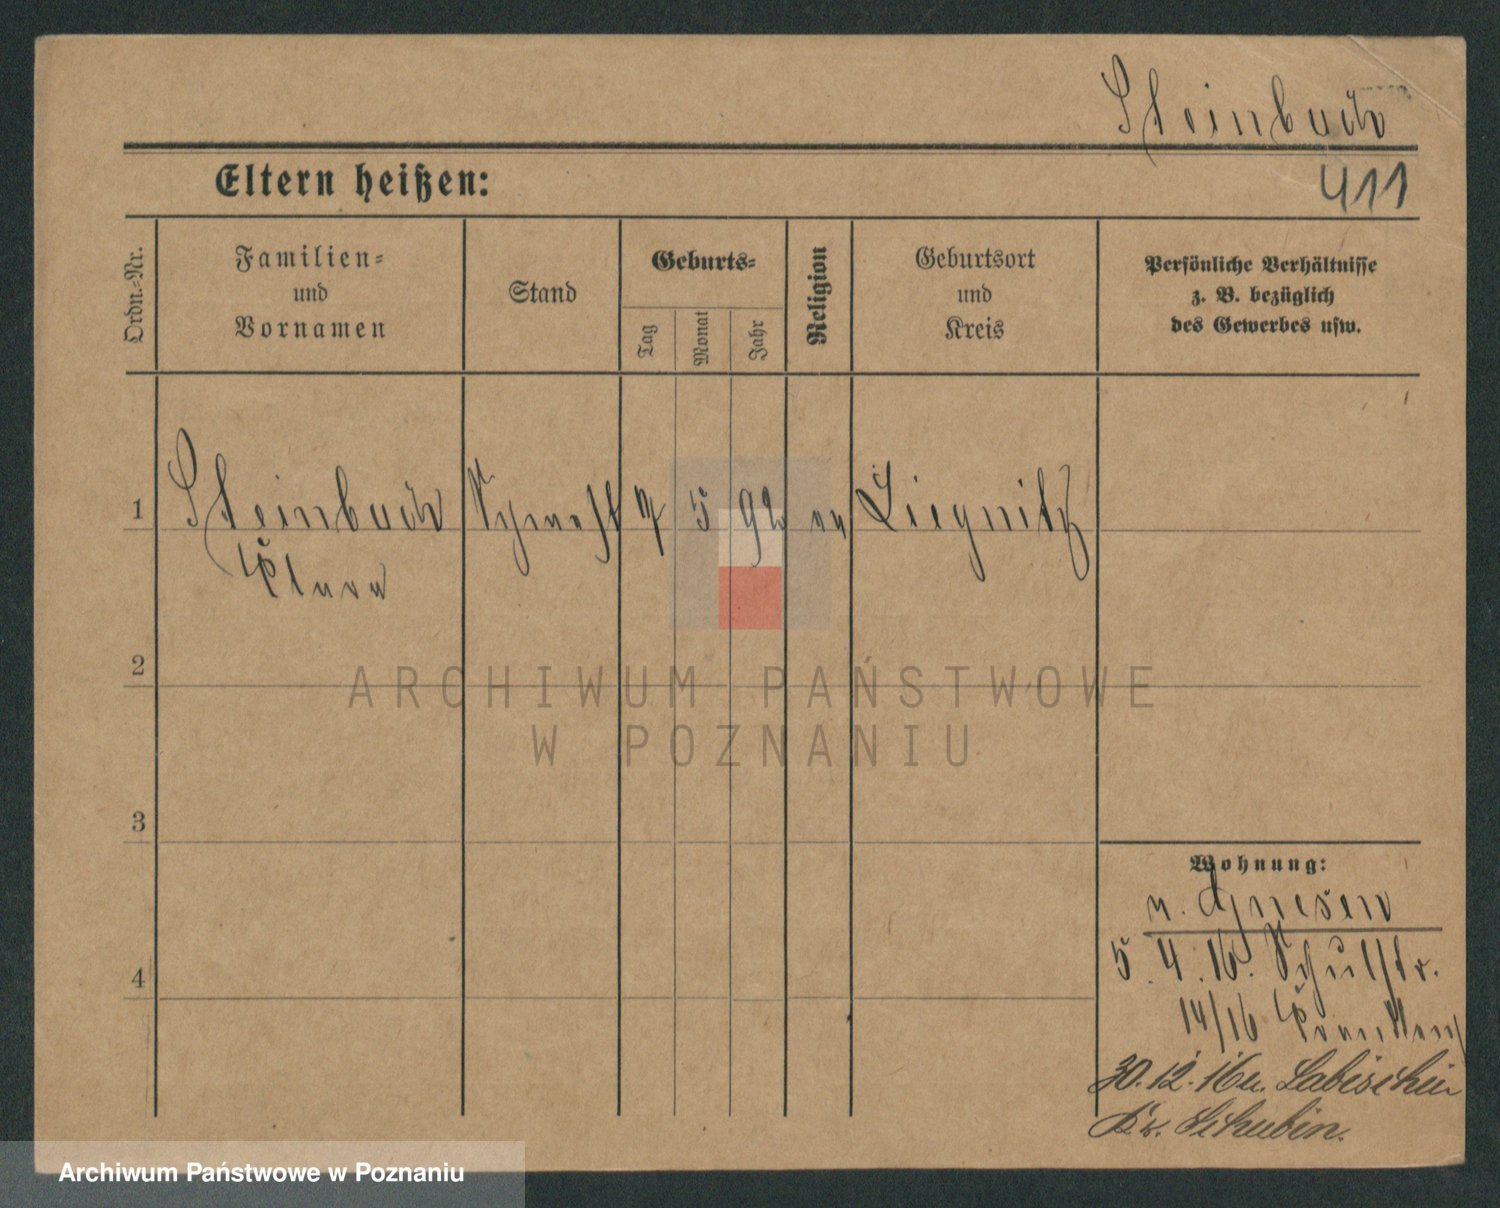 Steinbach
411
Eltern heißen:
Ordn.-Nr.
Familien-
und
Vornamen
Stand
Geburts-
Tag
Monat
Jahr
Religion
Geburtsort
und
Kreis
Persönliche Verhältnisse
z. B. bezüglich
des Gewerbes usw.
1
Steinbach
Clara
5
92
ev
Liegnitz
2
ARCHIWUM PAŃSTWOWE
W POZNANIU
3
Wohnung:
n. Gnesen
4
5.4.16. Schulstr.
14/16
30.12.16 n. Labischin
Kr. Schubin.
Archiwum Państwowe w Poznaniu